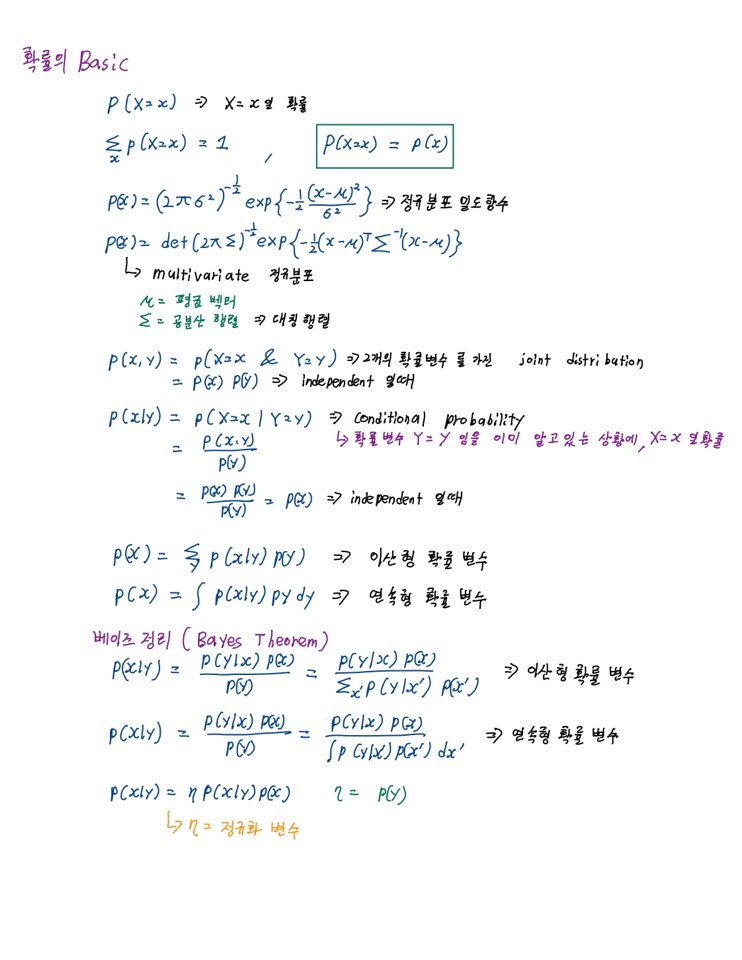 확률의 Basic
p(X=x) ⇒ X=x 일 확률
∑ₓ p(X=x) = 1 , P(X=x) = p(x)
p(x) = (2πσ²)^{-1/2} exp{-1/2 (x-μ)²/σ²} ⇒ 정규분포 밀도함수
p(x) = det(2πΣ)^{-1/2} exp{-1/2(x-μ)ᵀ Σ⁻¹(x-μ)}
↳ multivariate 정규분포
μ = 평균 벡터
Σ = 공분산 행렬 ⇒ 대칭행렬
p(x,y) = p(X=x & Y=y) ⇒ 2개의 확률변수 를 가진 joint distribution
= p(x) p(y) ⇒ independent 일때
p(x|y) = p(X=x | Y=y) ⇒ conditional probability
= p(x,y) / p(y) ↳ 확률 변수 Y=y 임을 이미 알고있는 상황에, X=x 일확률
= p(x) p(y) / p(y) = p(x) ⇒ independent 일때
p(x) = ∑_y p(x|y) p(y) ⇒ 이산형 확률 변수
p(x) = ∫ p(x|y) py dy ⇒ 연속형 확률 변수
베이즈 정리 (Bayes Theorem)
p(x|y) = p(y|x) p(x) / p(y) = p(y|x) p(x) / ∑_{x'} p(y|x') p(x') ⇒ 이산형 확률 변수
p(x|y) = p(y|x) p(x) / p(y) = p(y|x) p(x) / ∫p(y|x') p(x') dx' ⇒ 연속형 확률 변수
p(x|y) = η p(x|y) p(x) η = p(y)
↳ η = 정규화 변수